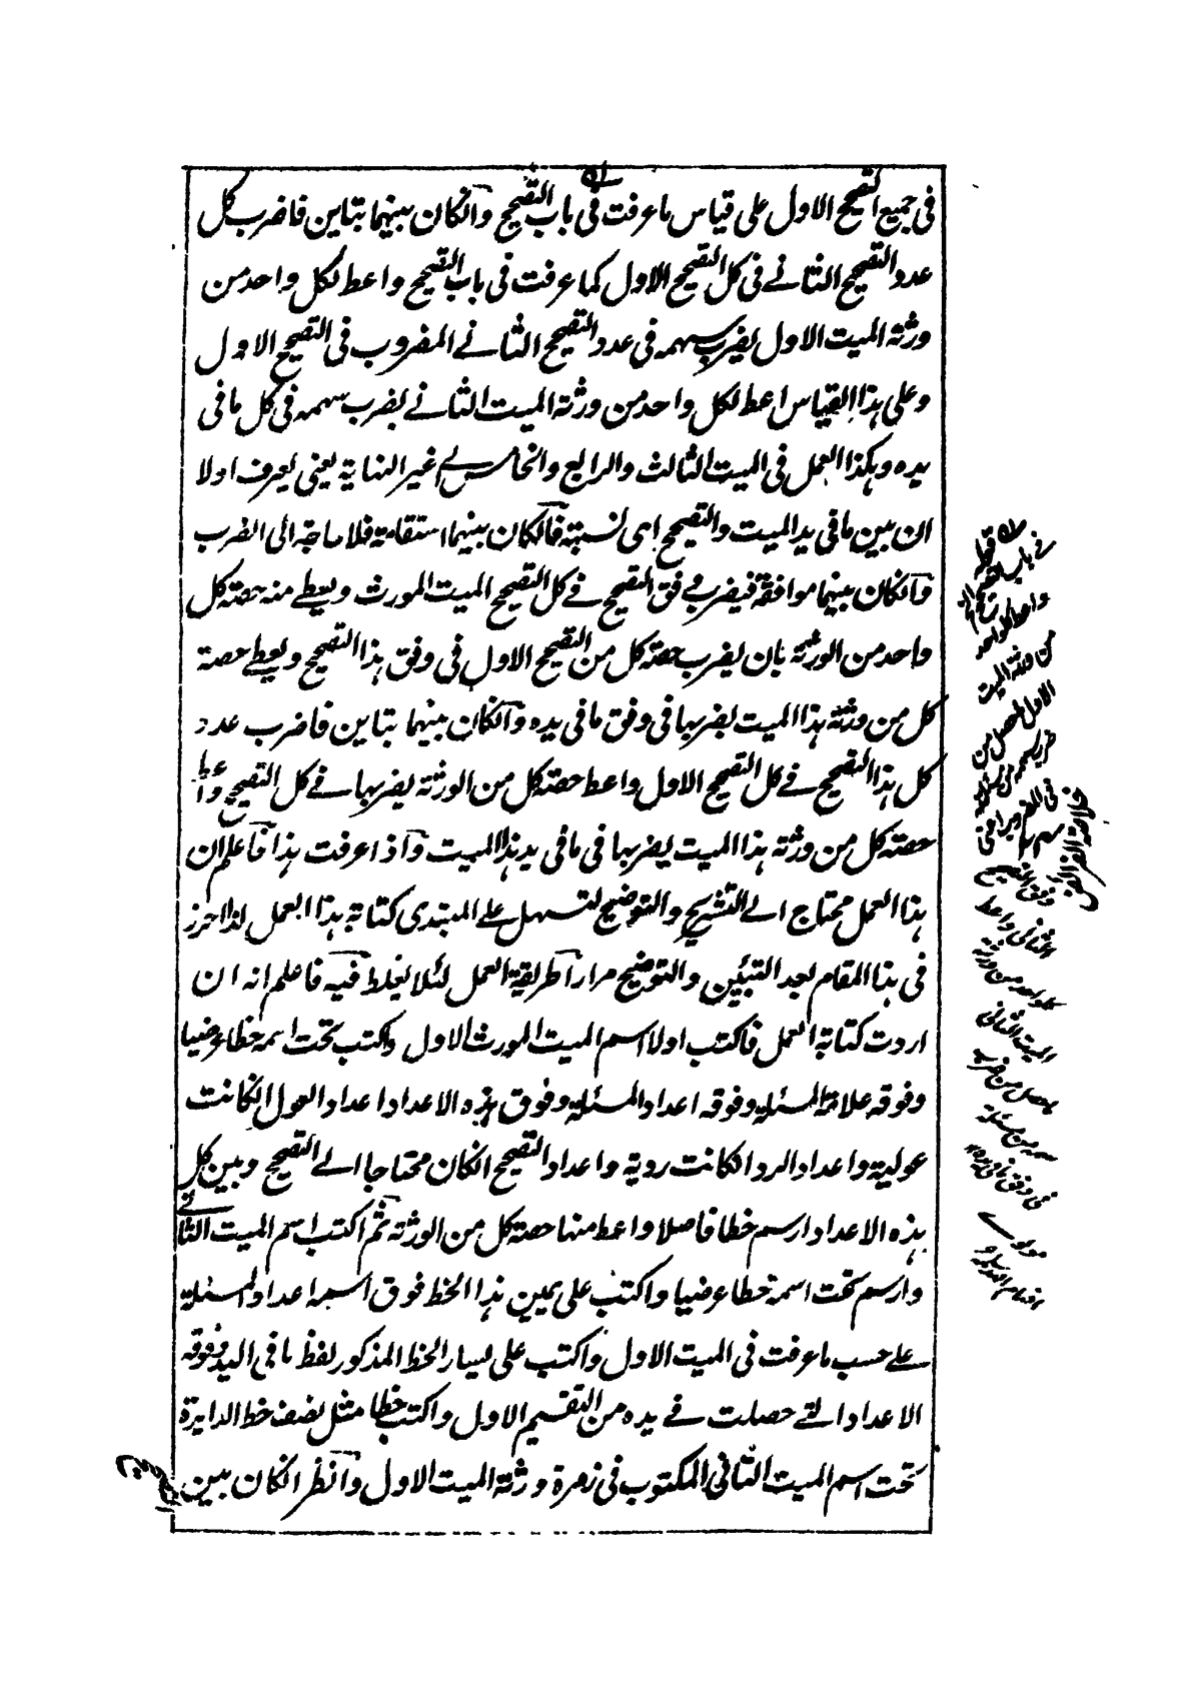 فى جميع التصحيح الاول على قياس ما عرفت فى باب التصحيح وانكان بينهما تباين فاضرب كل
عدد التصحيح الثانے فى كل التصحيح الاول كما عرفت فى باب التصحيح واعط لكل واحد من
ورثة الميت الاول بضرب سهمه فى عدد التصحيح الثانے المضروب فى التصحيح الاول
وعلى هذا القياس اعط لكل واحد من ورثة الميت الثانے بضرب سهمه فى كل ما فى
يده وهكذا العمل فى الميت الثالث والرابع والخامس الے غير النهاية يعنى يعرف اولا
ان بين ما فى يد الميت والتصحيح اى نسبة فانكان بينهما استقامة فلا حاجة الى الضرب
وانكان بينهما موافقة فيضرب وفق التصحيح فے كل التصحيح الميت المورث ويعطے منه حصة كل
واحد من الورثة بان يضرب حصة كل من التصحيح الاول فى وفق هذا التصحيح ويعطے حصة
كل من ورثة هذا الميت بضربها فى وفق ما فى يده وانكان بينهما تباين فاضرب عدد
كل هذا التصحيح فے كل التصحيح الاول واعط حصة كل من الورثة بضربها فے كل التصحيح واعط
حصة كل من ورثة هذا الميت بضربها فى ما فى يد هذا الميت واذا عرفت هذا فاعلم ان
هذا العمل محتاج الے التشريح والتوضيح لتسهل علے المبتدى كتابة هذا العمل لذا احرز
فى هذا المقام بعد التبئين والتوضيح مرارا طريقة العمل لئلا يغلط فيه فاعلم انه ان
اردت كتابة العمل فاكتب اولا اسم الميت المورث الاول واكتب تحت اسمه خطا عرضيا
وفوقه علامة المسئلة وفوقه اعداد المسئلة وفوق هذه الاعداد اعداد العول انكانت
عولية واعداد الرد انكانت ردية واعداد التصحيح انكان محتاجا الے التصحيح وبين كل
هذه الاعداد ارسم خطا فاصلا واعط منها حصة كل من الورثة ثم اكتب اسم الميت الثانے
وارسم تحت اسمه خطا عرضيا واكتب على يمين هذا الخط فوق اسمه اعداد المسئلة
علے حسب ما عرفت فى الميت الاول واكتب على يسار الخط المذكور لفظ ما فى اليد وفوقه
الاعداد التے حصلت فے يده من التقسيم الاول واكتب خطا مثل نصف خط الدايرة
تحت اسم الميت الثانى المكتوب فى زمرة ورثة الميت الاول وانظر انكان بين
قوله
فى باب التصحيح
واعط لكل واحد
من ورثة الميت
الاول
وفق التصحيح
الثانى واعط
لكل واحد من ورثة
الميت الثانى